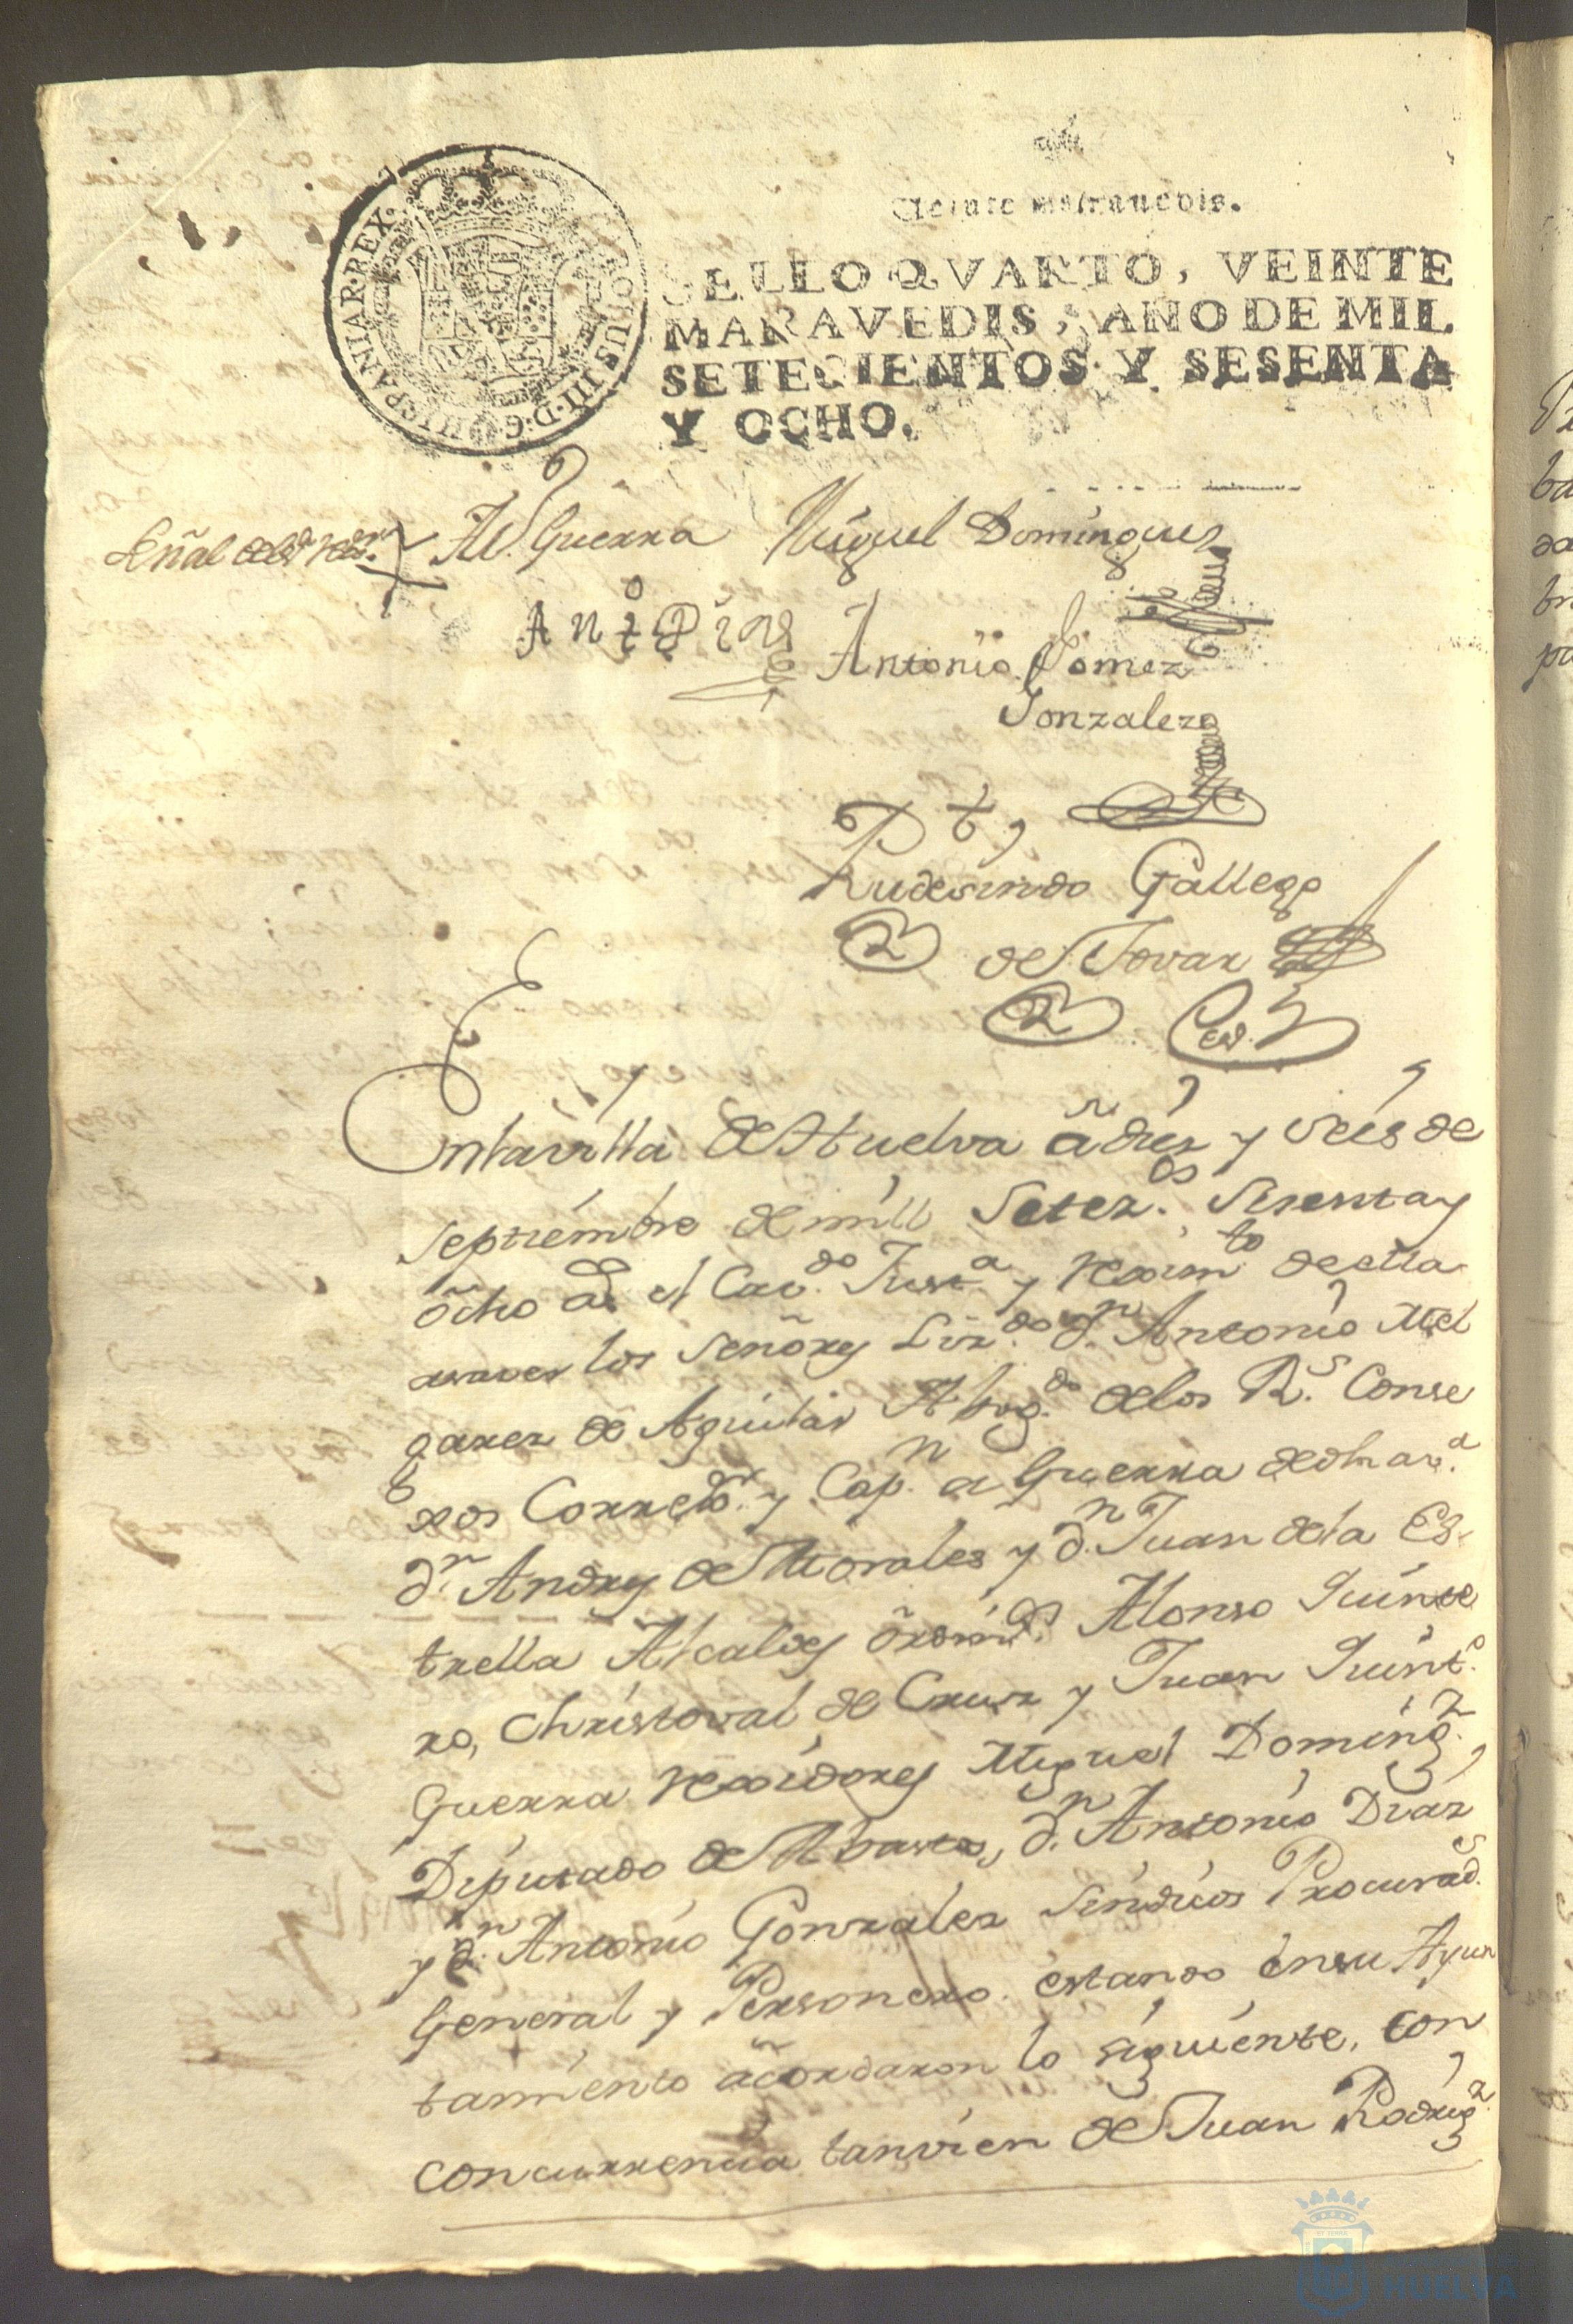 Veinte maravedis.
SELLO QVARTO, VEINTE
MARAVEDIS, AÑO DE MIL
SETECIENTOS Y SESENTA
Y OCHO.
CAROLUS III D. G. HISPANIAR. REX
Señal
Guerra Miguel Dominguez
Antº Dias
Antonio Gomez
Gonzalez
Rudesindo Gallego
de Tovar
Esno
En la villa de Huelva a diez y seis de
septiembre de mill Setezos. Sesenta y
ocho as el Cavdo. Justa. y Reximto de ella
asaver los Señores Lizdo. dn. Antonio Mel
garez de Aguilar Abogdo. de los Rs. Conse
xos Corredor. y Capn. a Guerra de dha va.
dn. Andres de Morales y dn. Juan de la Es-
trella Alcaldes ordinos. Alonso Quinte
ro, Christoval de Cruz y Juan Quinto.
Guerra Rexidores Miguel Domingz.
Diputado de Abastos, dn. Antonio Diaz
y dn. Antonio Gonzalez Sindicos Procurads.
General y Personero. estando en su Ayun
tamiento acordaron lo siguiente, con
concurrencia tanvien de Juan Rodrigz.
HUELVA